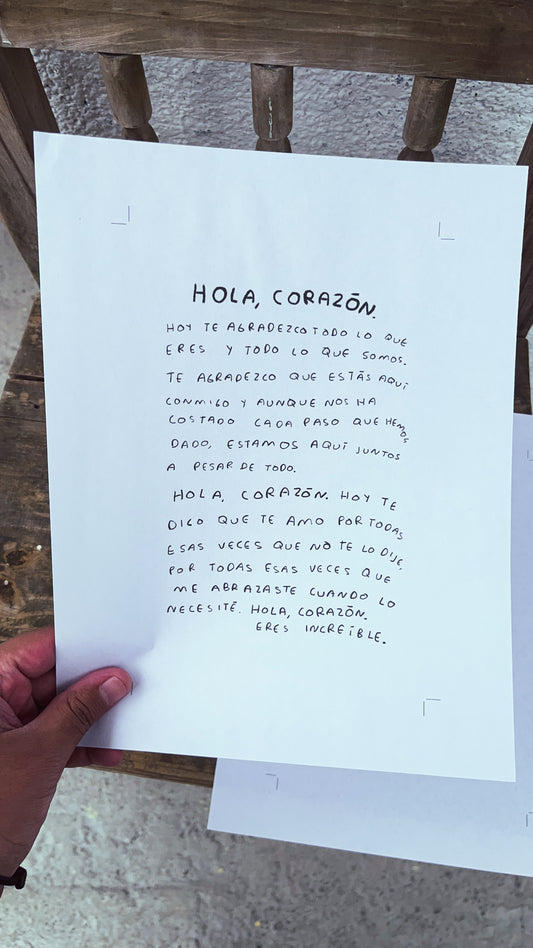 HOLA, CORAZÓN.
HOY TE AGRADEZCO TODO LO QUE
ERES Y TODO LO QUE SOMOS.
TE AGRADEZCO QUE ESTÁS AQUÍ
CONMIGO Y AUNQUE NOS HA
COSTADO CADA PASO QUE HEMOS
DADO, ESTAMOS AQUÍ JUNTOS
A PESAR DE TODO.
HOLA, CORAZÓN. HOY TE
DIGO QUE TE AMO POR TODAS
ESAS VECES QUE NO TE LO DIJE,
POR TODAS ESAS VECES QUE
ME ABRAZASTE CUANDO LO
NECESITÉ. HOLA, CORAZÓN.
ERES INCREÍBLE.